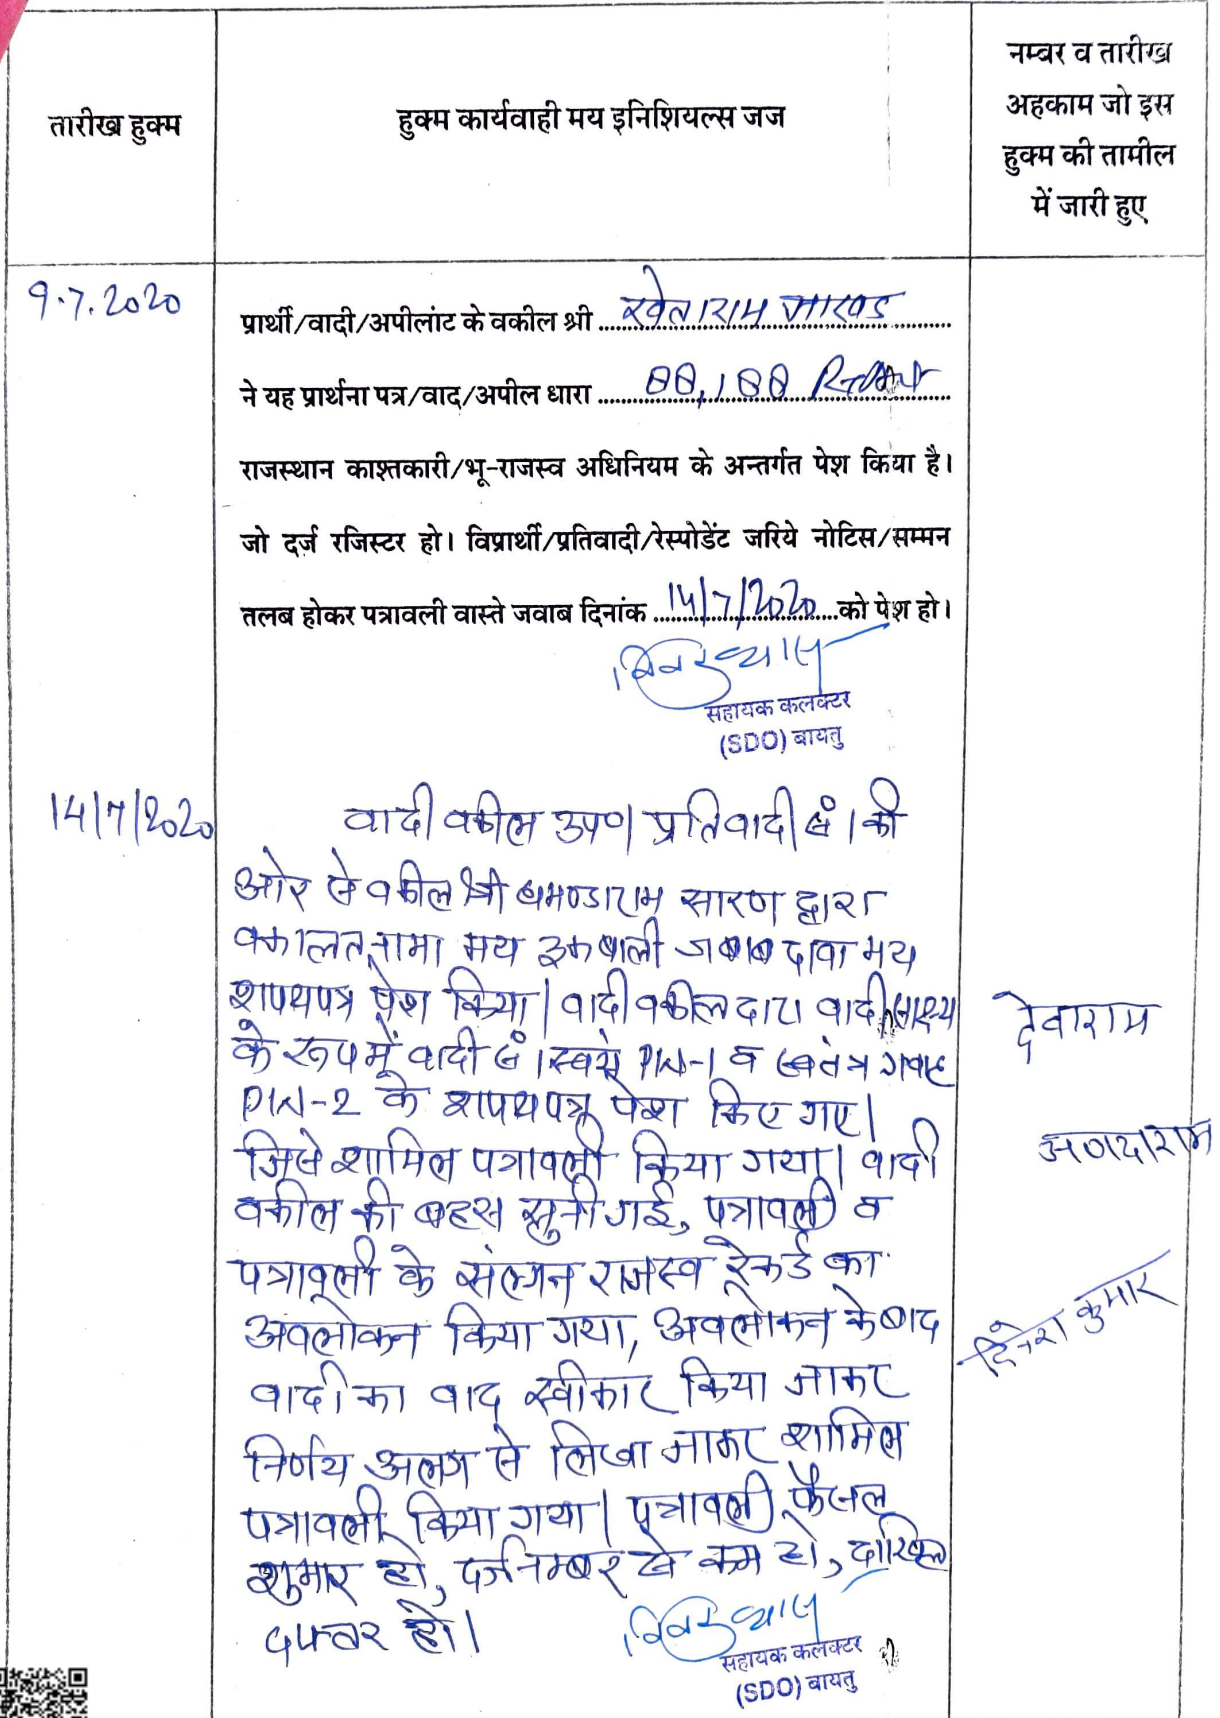 तारीख हुक्म
हुक्म कार्यवाही मय इनिशियल्स जज
नम्बर व तारीख
अहकाम जो इस
हुक्म की तामील
में जारी हुए
9.7.2020
प्रार्थी/वादी/अपीलांट के वकील श्री खेताराम
ने यह प्रार्थना पत्र/वाद/अपील धारा 88,188
राजस्थान काश्तकारी/भू-राजस्व अधिनियम के अन्तर्गत पेश किया है।
जो दर्ज रजिस्टर हो। विप्रार्थी/प्रतिवादी/रेस्पोडेंट जरिये नोटिस/सम्मन
तलब होकर पत्रावली वास्ते जवाब दिनांक 14/7/2020 को पेश हो।
सहायक कलक्टर
(SDO) बायतु
14/7/2020
वादी वकील उप0। प्रतिवादी सं 1 की
ओर से वकील श्री घमण्डाराम सारण द्वारा
वकालतनामा मय इकबाली जबाब दावा मय
शपथपत्र पेश किया। वादी वकील द्वारा वादी साक्ष्य
के रूप में वादी सं 1 स्वयं PW-1 व स्वतंत्र गवाह
PW-2 के शपथपत्र पेश किए गए।
जिसे शामिल पत्रावली किया गया। वादी
वकील की बहस सुनी गई, पत्रावली व
पत्रावली के संलग्न राजस्व रेकर्ड का
अवलोकन किया गया, अवलोकन के बाद
वादी का वाद स्वीकार किया जाकर
निर्णय अलग से लिखा जाकर शामिल
पत्रावली किया गया। पत्रावली फैसल
शुमार हो, दर्ज नम्बर से कम हो, दाखिल
दफ्तर हो।
देवाराम
जगदाराम
दिनेश कुमार
सहायक कलक्टर
(SDO) बायतु